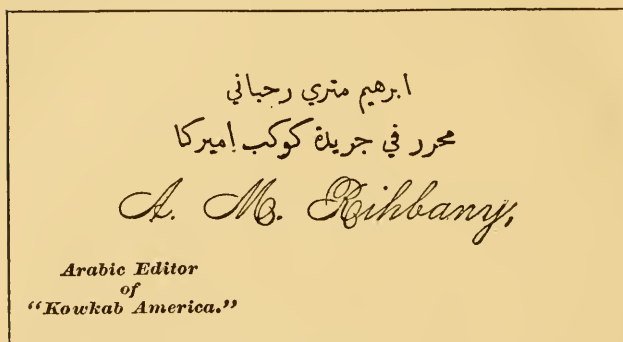 ابرهيم متري رحباني
محرر في جريدة كوكب اميركا
A. M. Rihbany,
Arabic Editor
of
“Kowkab America.”